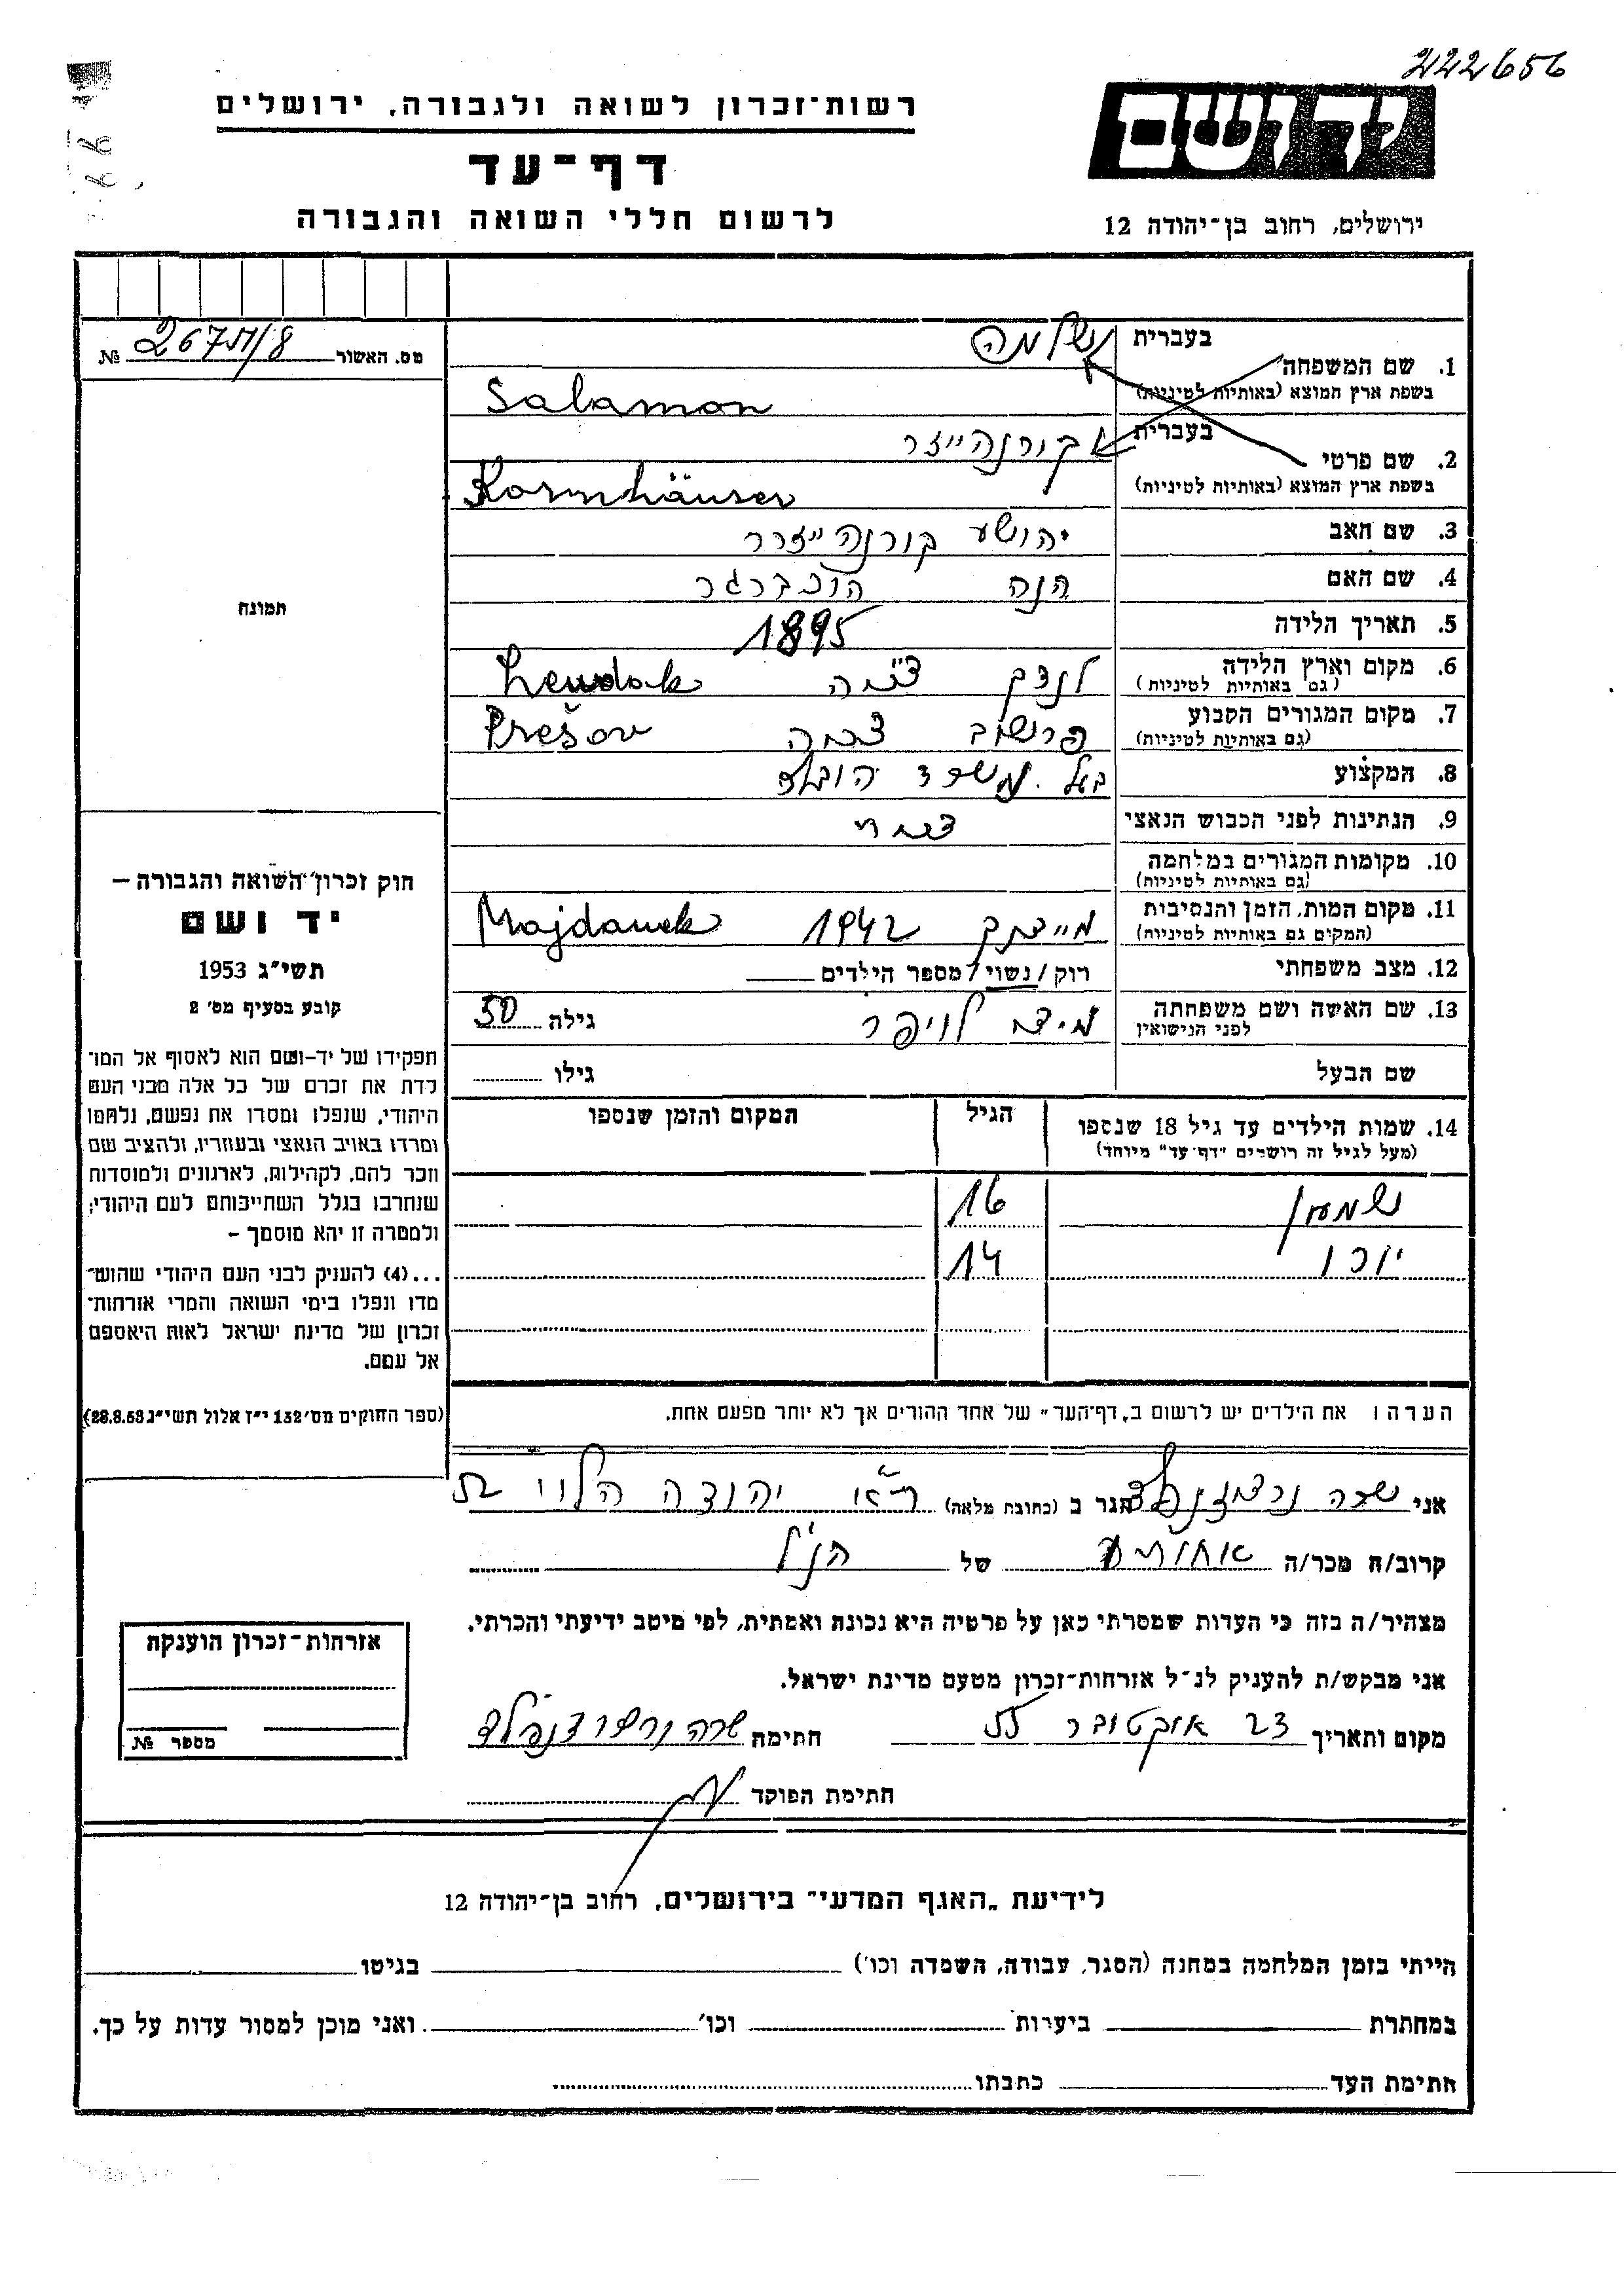 222656
רשות־זכרון לשואה ולגבורה, ירושלים
יד ושם
דף־עד
לרשום חללי השואה והגבורה
ירושלים, רחוב בן־יהודה 12
מס. האשור № 267ח/8
1. שם המשפחה
בעברית שלמה
בשפת ארץ המוצא (באותיות לטיניות) Salamon
2. שם פרטי
בעברית קורנהייזר
בשפת ארץ המוצא (באותיות לטיניות) Kornhäuser
3. שם האב יהושע קורנהייזר
4. שם האם חנה הוכברגר
5. תאריך הלידה 1895
6. מקום וארץ הלידה
(גם באותיות לטיניות)
Lendak
7. מקום המגורים הקבוע פרשוב Prešov
(גם באותיות לטיניות)
8. המקצוע בעל משרד
9. הנתינות לפני הכבוש הנאצי
10. מקומות המגורים במלחמה
(גם באותיות לטיניות)
11. מקום המות, הזמן והנסיבות מיידנק 1942 Majdanek
(המקום גם באותיות לטיניות)
12. מצב משפחתי רוק / נשוי / מספר הילדים
13. שם האשה ושם משפחתה
לפני הנישואין
גילה 50
שם הבעל גילו
14. שמות הילדים עד גיל 18 שנספו הגיל המקום והזמן שנספו
(מעל לגיל זה רושמים "דף־עד" מיוחד)
שמעון 16
14
הערה: את הילדים יש לרשום ב„דף־העד" של אחד ההורים אך לא יותר מפעם אחת.
תמונה
חוק זכרון השואה והגבורה –
יד ושם
תשי"ג 1953
קובע בסעיף מס' 2
תפקידו של יד-ושם הוא לאסוף אל המו־
לדת את זכרם של כל אלה מבני העם
היהודי, שנפלו ומסרו את נפשם, נלחמו
ומרדו באויב הנאצי ובעוזריו, ולהציב שם
וזכר להם, לקהילות, לארגונים ולמוסדות
שנחרבו בגלל השתייכותם לעם היהודי;
ולמטרה זו יהא מוסמך –
...(4) להעניק לבני העם היהודי שהוש־
מדו ונפלו בימי השואה והמרי אזרחות־
זכרון של מדינת ישראל לאות היאספם
אל עמם.
(ספר החוקים מס' 132 י"ז אלול תשי"ג 28.8.53)
אני שרה הגר ב (כתובת מלאה) ת"א יהודה הלוי
קרוב/ה מכר/ה של הנ"ל
מצהיר/ה בזה כי העדות שמסרתי כאן על פרטיה היא נכונה ואמתית, לפי מיטב ידיעתי והכרתי.
אני מבקש/ת להעניק לנ"ל אזרחות־זכרון מטעם מדינת ישראל.
מקום ותאריך 23 אוקטובר 55 חתימה שרה
חתימת הפוקד
אזרחות־זכרון הוענקה
מספר №
לידיעת „האגף המדעי" בירושלים, רחוב בן־יהודה 12
הייתי בזמן המלחמה במחנה (הסגר, עבודה, השמדה וכו') בגיטו
במחתרת ביערות וכו' ואני מוכן למסור עדות על כך.
חתימת העד כתבתו